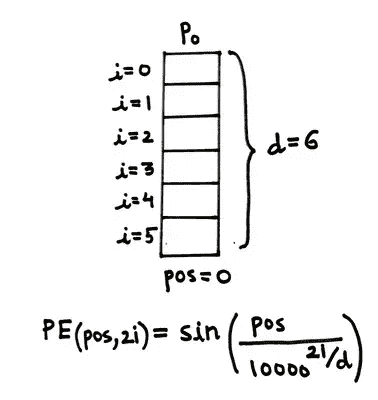 P₀
i=0
i=1
i=2
i=3
i=4
i=5
d=6
pos=0
PE(pos,2i) = sin(pos/10000^(2i/d))